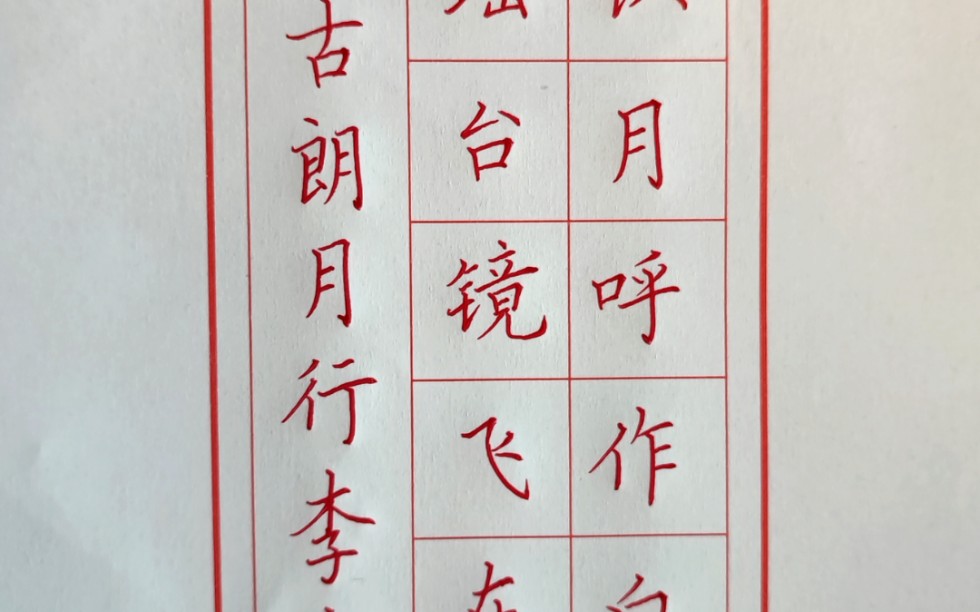 月呼作白
台镜飞在
古朗月行李